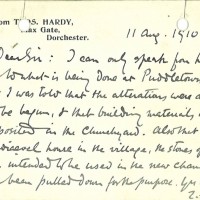 om THOS. HARDY,
ax Gate,
Dorchester.
11 Aug. 1910
Dear Sir: I can only speak from h
to what is being done at Puddletown
I was told that the alterations were a
be begun, & that building materials,
posited in the Churchyard. Also that
dieval house in the village, the stones of
intended to be used in the new chan
been pulled down for the purpose. Yrs